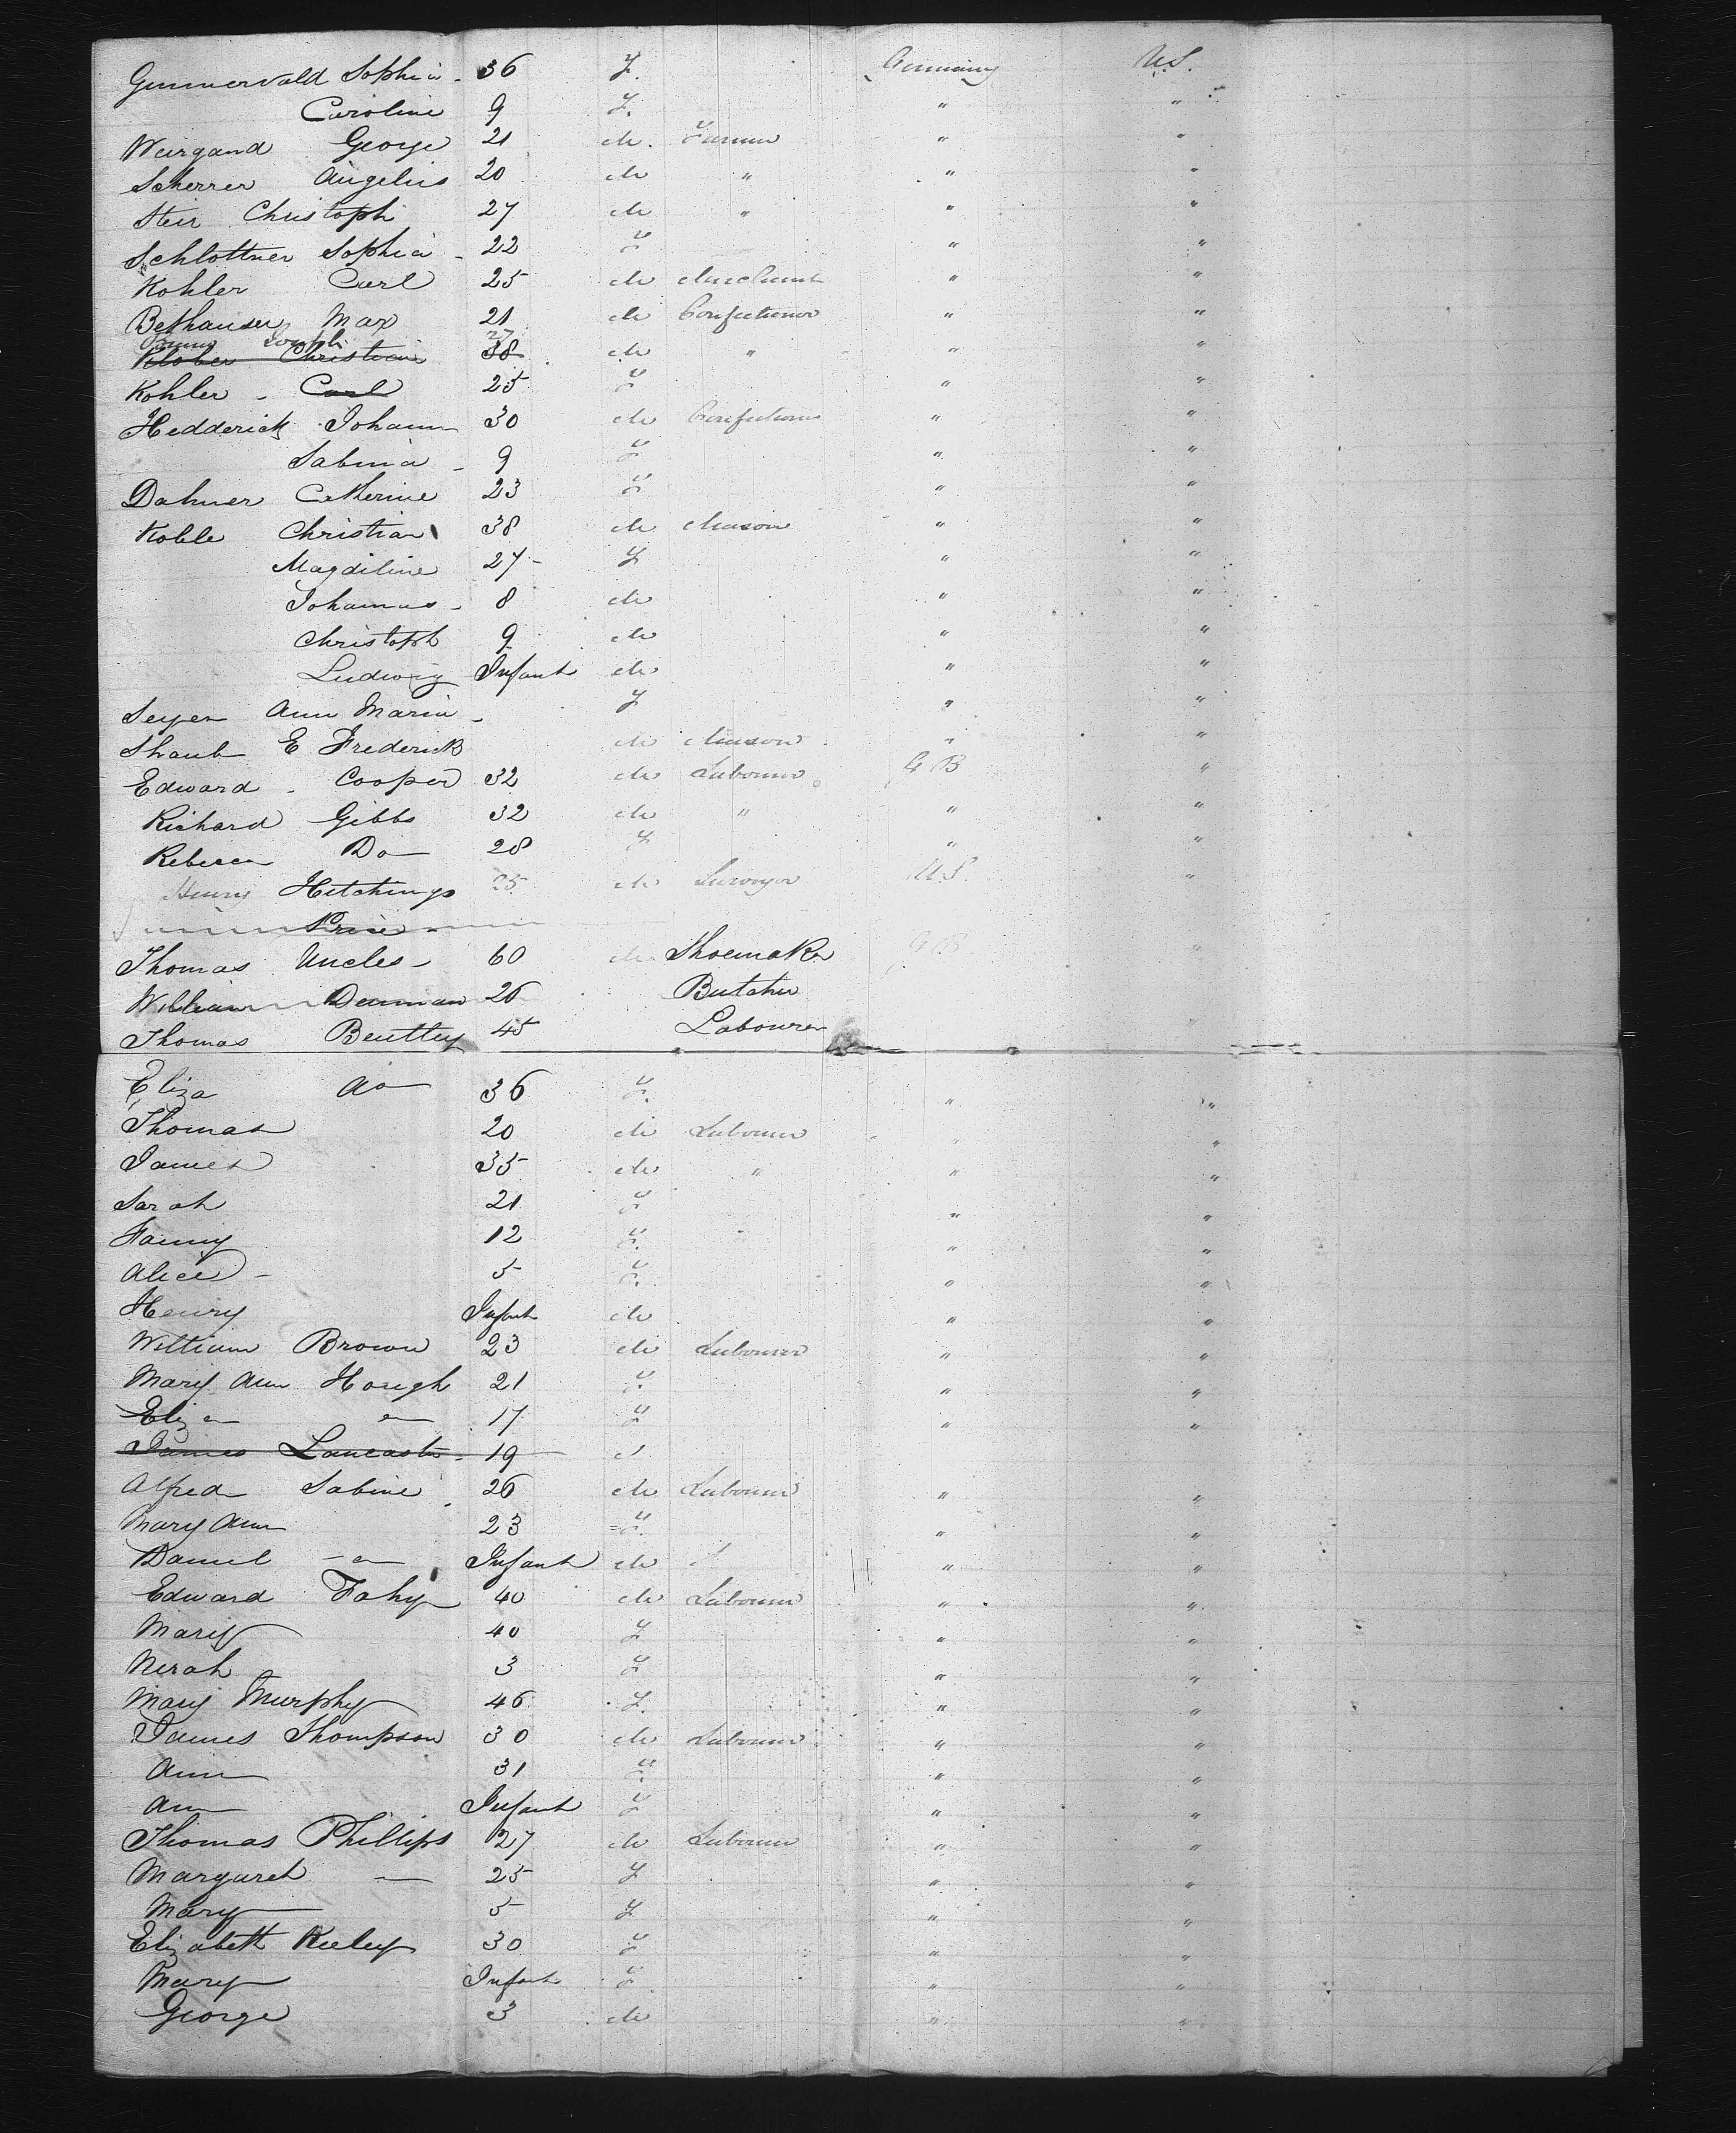 Gunnervald Sophia - 36 F. Germany U.S.
Caroline 9 F. " "
Weirgand George 21 M. Farmer " "
Scherrer Angelius 20 M " " "
Steir Christoph 27 M " " "
Schlottner Sophia - 22 F " "
Kohler Carl 25 M Merchant " "
Bethauser Max 21 M Confectioner " "
Joseph 27
Klober Christian 38 M " " "
Kohler - Carl 25 F " "
Hedderick Johann 30 M Confectioner " "
Sabina - 9 F " "
Dahmer Catherine 23 F " "
Koble Christian 38 M Mason " "
Magdiline 27 - F " "
Johannus - 8 M " "
Christoph 9 M " "
Ludwig Infant M " "
Seyer Ann Maria - F " "
Shaub E Frederick M Mason " "
Edward - Cooper 32 M Labourer G B "
Richard Gibbs 32 M " " "
Rebecca Do 28 F " "
Henry Hitchings 25 M Surveyor U.S. "
Price
Thomas Uncles - 60 M Shoemaker G B "
William Denman 26 Butcher
Thomas Bentley 45 Labourer "
Eliza do 36 F. " "
Thomas 20 M Labourer " "
James 35 M " " "
Sarah 21 F " "
Fanny 12 F. " "
Alice - 5 F. " "
Henry Infant M " "
William Brown 23 M Labourer " "
Mary Ann Hough 21 F. " "
Eliza 17 F " "
James Lancaster - 19
Alfred Sabine 26 M Labourer " "
Mary Ann 23 F. " "
Daniel Infant M " "
Edward Fahy 40 M Labourer " "
Mary 40 F " "
Norah 3 F " "
Mary Murphy 46 F. " "
James Thompson 30 M Labourer " "
Ann 31 F. " "
Ann Infant F " "
Thomas Phillips 27 M Labourer " "
Margaret 25 F " "
Mary 5 F " "
Elizabeth Kieley 30 F " "
Mary Infant F " "
George 3 M " "